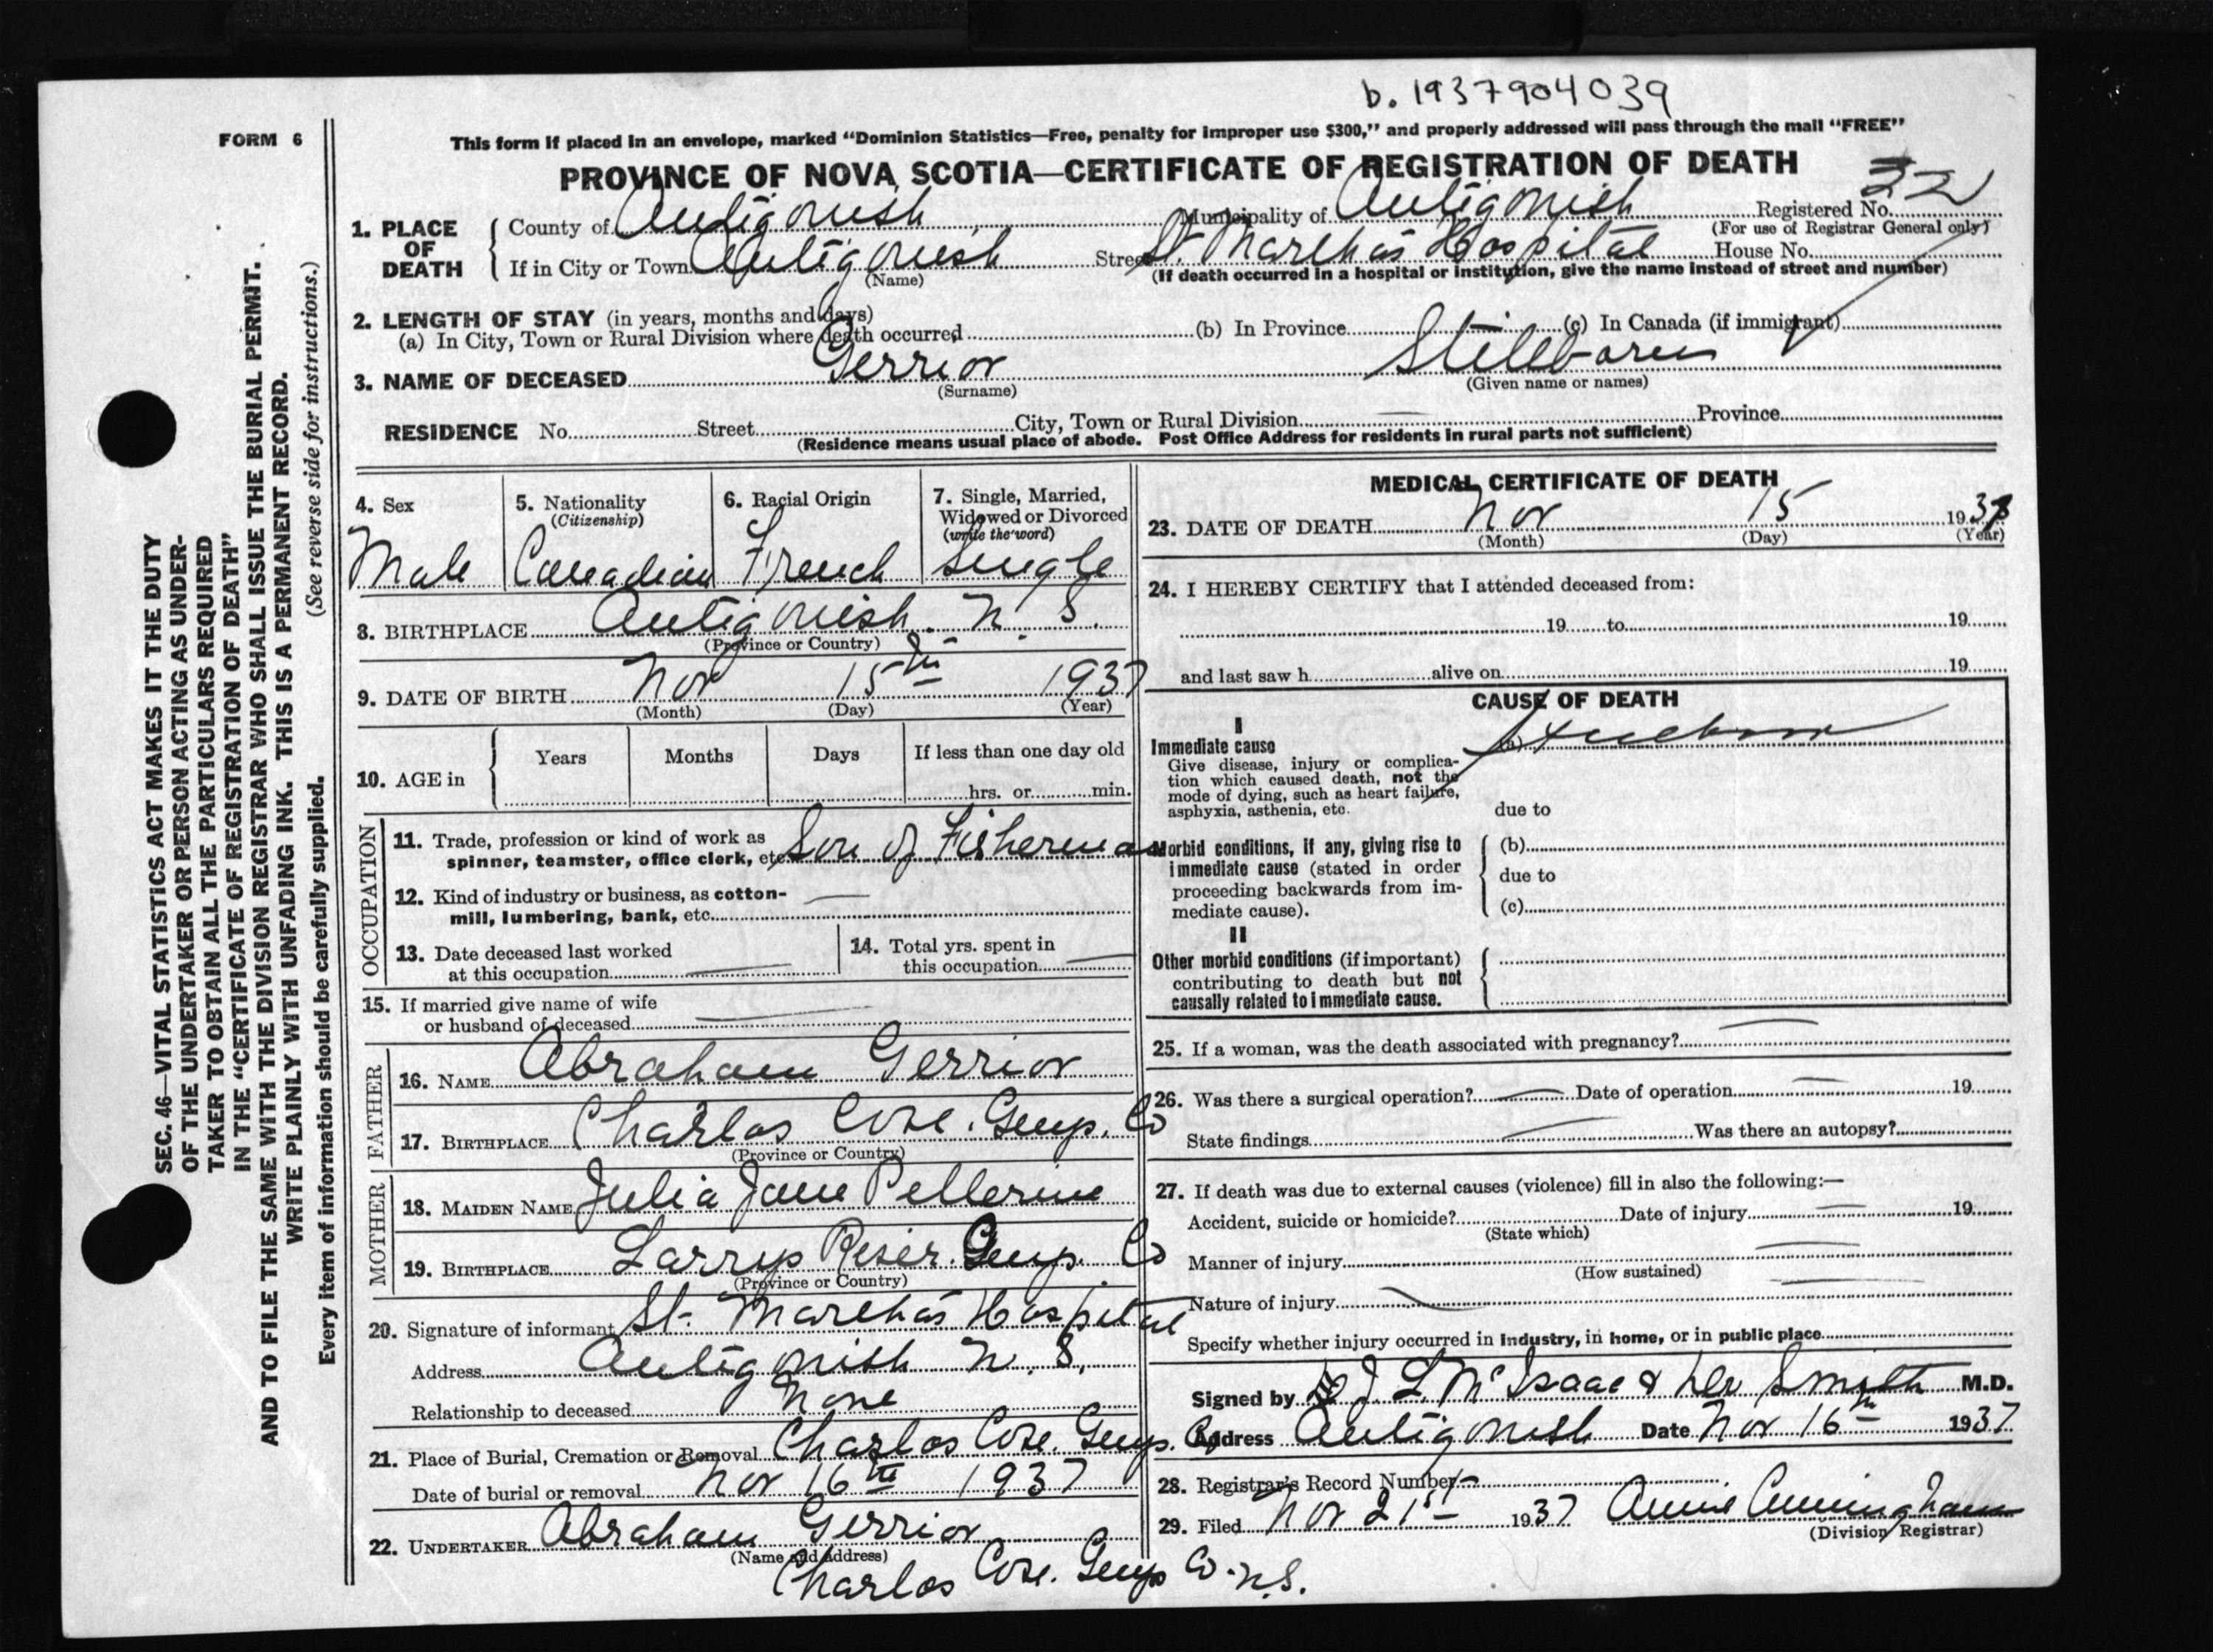 b. 1937904039
FORM 6
This form if placed in an envelope, marked “Dominion Statistics—Free, penalty for improper use $300,” and properly addressed will pass through the mail “FREE”
PROVINCE OF NOVA SCOTIA—CERTIFICATE OF REGISTRATION OF DEATH
22
1. PLACE OF DEATH
County of Antigonish Municipality of Antigonish Registered No.
(For use of Registrar General only)
If in City or Town Antigonish Street St. Marthas Hospital House No.
(Name) (If death occurred in a hospital or institution, give the name instead of street and number)
2. LENGTH OF STAY (in years, months and days)
(a) In City, Town or Rural Division where death occurred (b) In Province (c) In Canada (if immigrant)
3. NAME OF DECEASED Gerrior Stillborn
(Surname) (Given name or names)
RESIDENCE No. Street City, Town or Rural Division Province
(Residence means usual place of abode. Post Office Address for residents in rural parts not sufficient)
4. Sex
Male
5. Nationality
(Citizenship)
Canadian
6. Racial Origin
French
7. Single, Married,
Widowed or Divorced
(write the word)
Single
8. BIRTHPLACE Antigonish. N. S.
(Province or Country)
9. DATE OF BIRTH Nov 15th 1937
(Month) (Day) (Year)
10. AGE in
Years Months Days If less than one day old
hrs. or min.
OCCUPATION
11. Trade, profession or kind of work as
spinner, teamster, office clerk, etc. Son of Fisherman
12. Kind of industry or business, as cotton-
mill, lumbering, bank, etc.
13. Date deceased last worked
at this occupation
14. Total yrs. spent in
this occupation
15. If married give name of wife
or husband of deceased
FATHER
16. NAME Abraham Gerrior
17. BIRTHPLACE Charlos Cove. Guys. Co
(Province or Country)
MOTHER
18. MAIDEN NAME Julia Jane Pellerine
19. BIRTHPLACE Larrys River. Guys. Co
(Province or Country)
20. Signature of informant St. Marthas Hospital
Address Antigonish N. S.
Relationship to deceased None
21. Place of Burial, Cremation or Removal Charlos Cove. Guys. Co
Date of burial or removal Nov 16th 1937
22. UNDERTAKER Abraham Gerrior
(Name and address)
Charlos Cove. Guys Co. N.S.
MEDICAL CERTIFICATE OF DEATH
23. DATE OF DEATH Nov 15 1937
(Month) (Day) (Year)
24. I HEREBY CERTIFY that I attended deceased from:
19 to 19
and last saw h alive on 19
CAUSE OF DEATH
I
Immediate cause
(a) Stillborn
Give disease, injury or complica-
tion which caused death, not the
mode of dying, such as heart failure,
asphyxia, asthenia, etc.
due to
Morbid conditions, if any, giving rise to
immediate cause (stated in order
proceeding backwards from im-
mediate cause).
(b)
due to
(c)
II
Other morbid conditions (if important)
contributing to death but not
causally related to immediate cause.
25. If a woman, was the death associated with pregnancy?
26. Was there a surgical operation? Date of operation 19
State findings Was there an autopsy?
27. If death was due to external causes (violence) fill in also the following:—
Accident, suicide or homicide? Date of injury 19
(State which)
Manner of injury
(How sustained)
Nature of injury
Specify whether injury occurred in industry, in home, or in public place
Signed by J L. McIsaac & Smith M.D.
Address Antigonish Date Nov 16th 1937
28. Registrar's Record Number
29. Filed Nov 21st 1937 Annie Cunningham
(Division Registrar)
SEC. 46—VITAL STATISTICS ACT MAKES IT THE DUTY
OF THE UNDERTAKER OR PERSON ACTING AS UNDER-
TAKER TO OBTAIN ALL THE PARTICULARS REQUIRED
IN THE “CERTIFICATE OF REGISTRATION OF DEATH”
AND TO FILE THE SAME WITH THE DIVISION REGISTRAR WHO SHALL ISSUE THE BURIAL PERMIT.
WRITE PLAINLY WITH UNFADING INK. THIS IS A PERMANENT RECORD.
Every item of information should be carefully supplied. (See reverse side for instructions.)